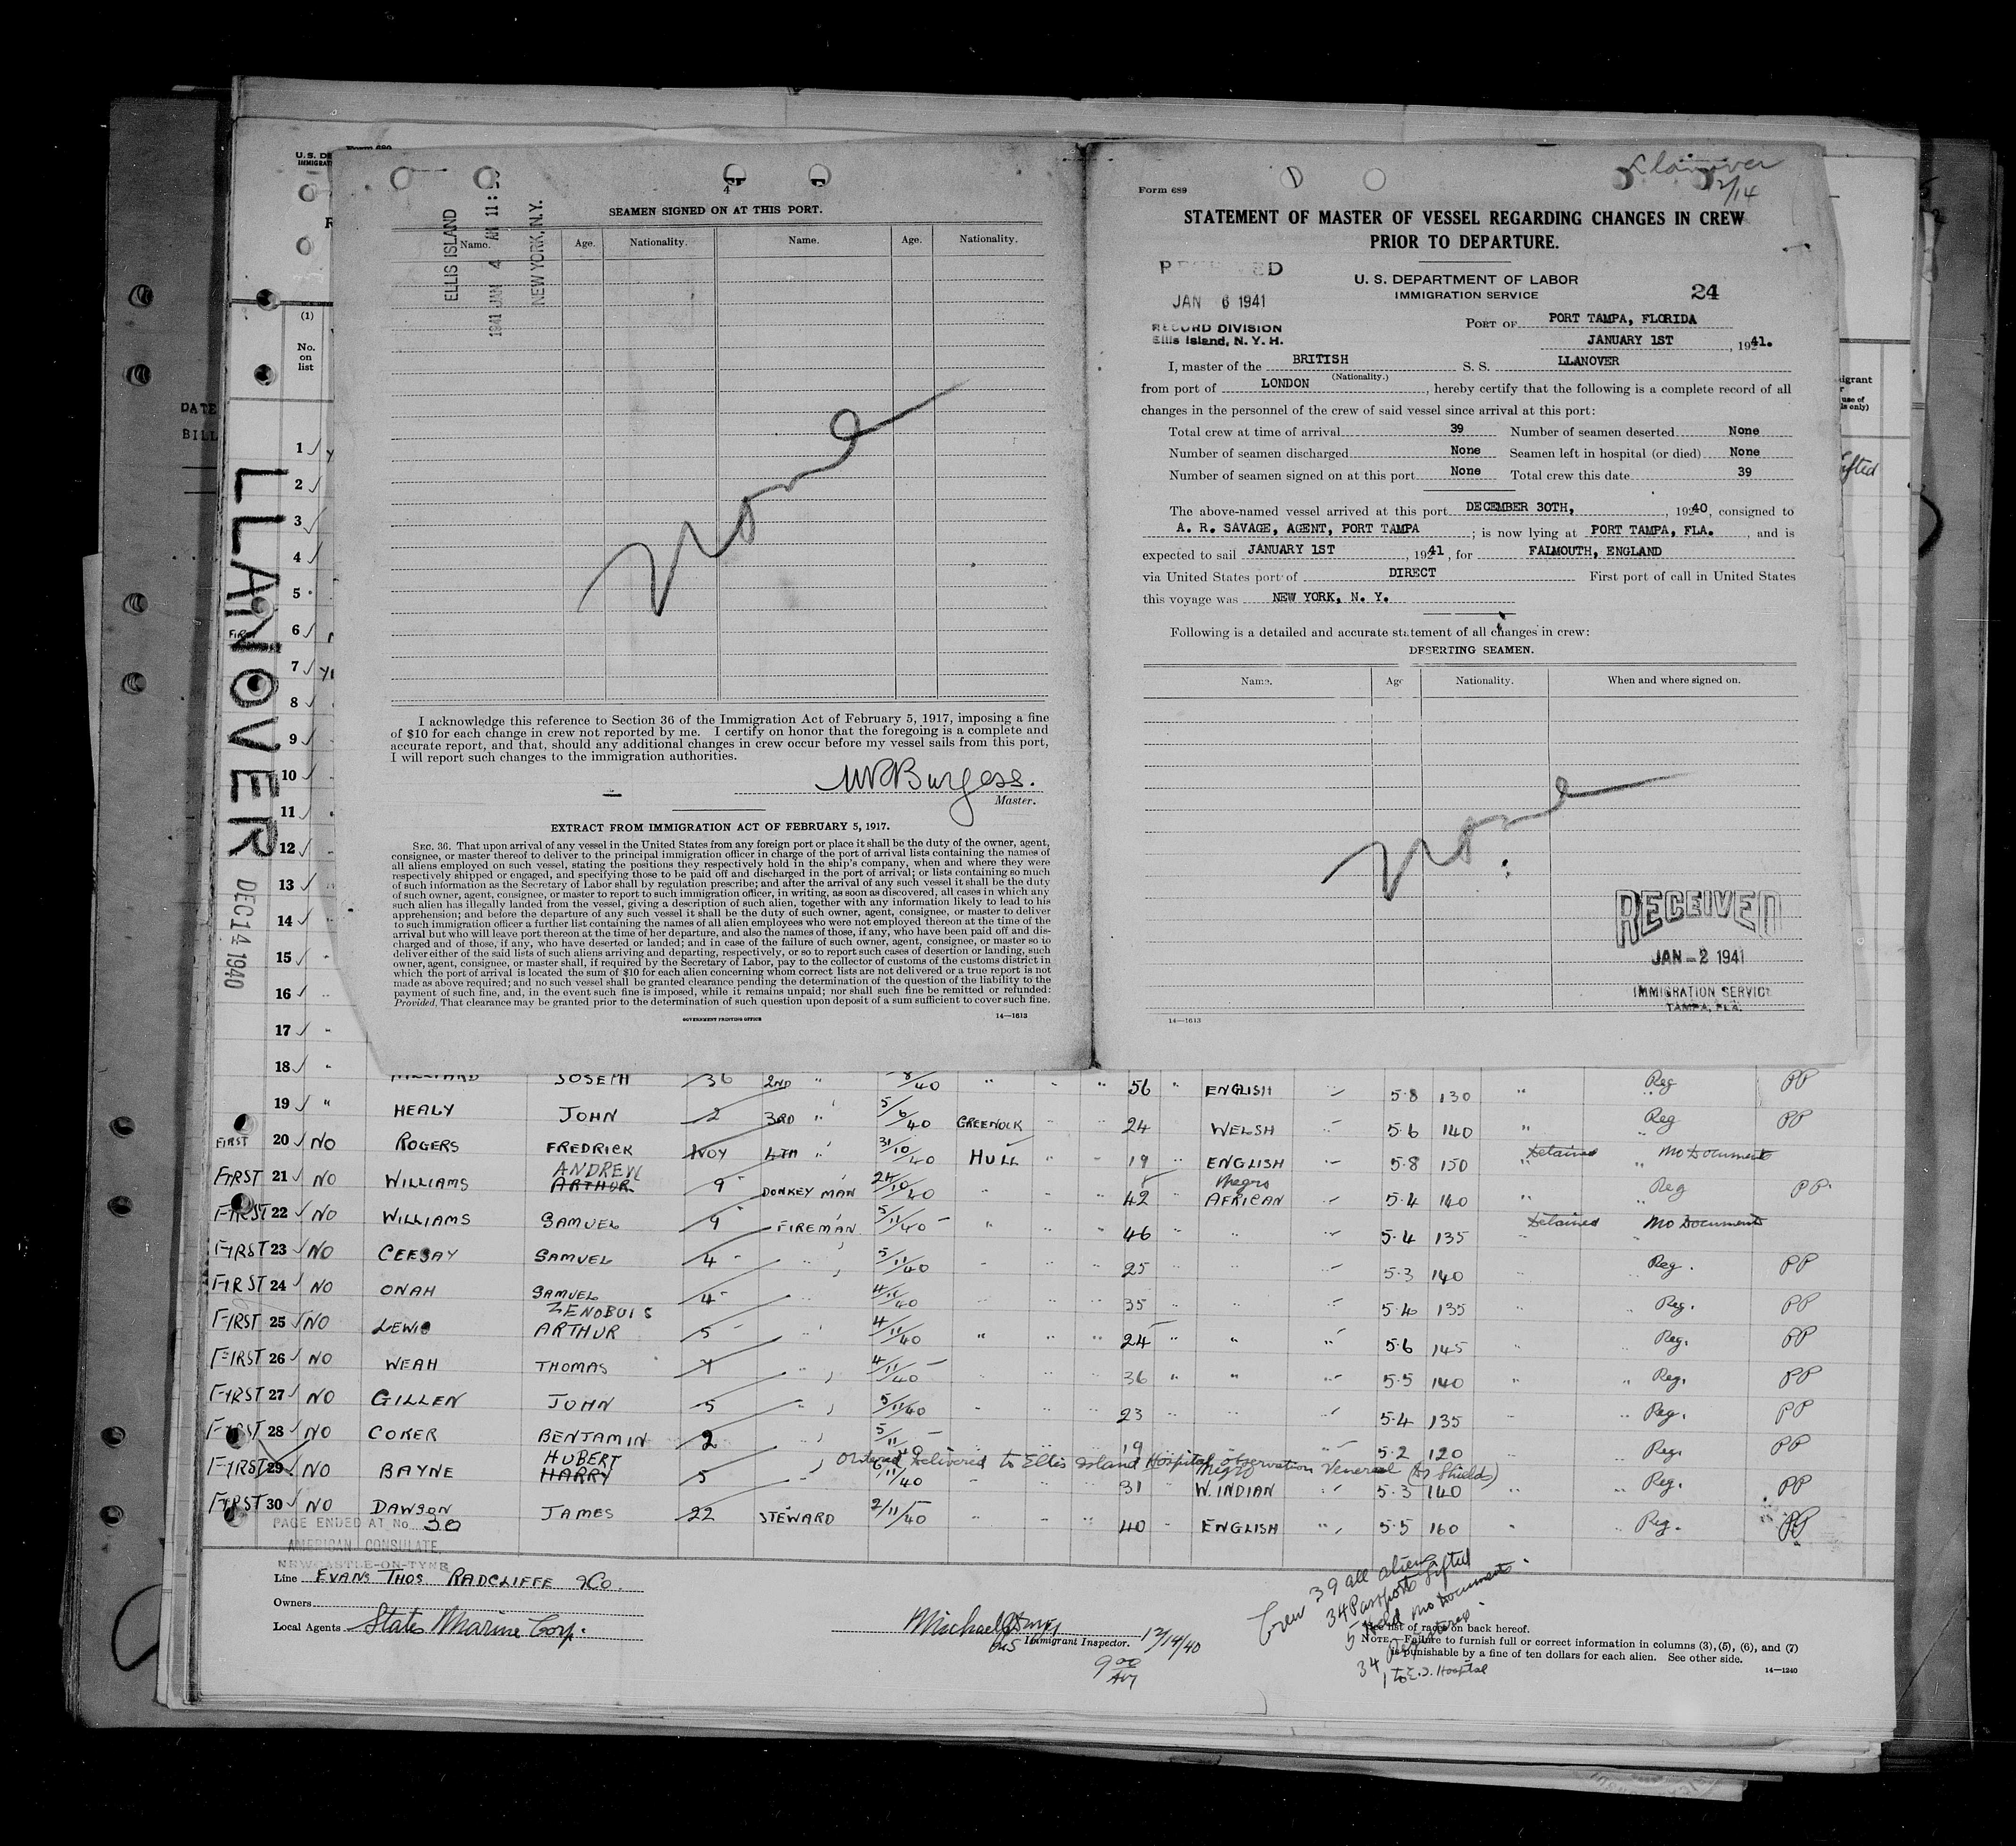 U. S. DE
IMMIGRAT
Form 689
4
SEAMEN SIGNED ON AT THIS PORT.
Name. Age. Nationality. Name. Age. Nationality.
ELLIS ISLAND
1941 JAN 4 AM 11:
NEW YORK, N.Y.
None
I acknowledge this reference to Section 36 of the Immigration Act of February 5, 1917, imposing a fine
of $10 for each change in crew not reported by me. I certify on honor that the foregoing is a complete and
accurate report, and that, should any additional changes in crew occur before my vessel sails from this port,
I will report such changes to the immigration authorities.
Burgess.
Master.
EXTRACT FROM IMMIGRATION ACT OF FEBRUARY 5, 1917.
SEC. 36. That upon arrival of any vessel in the United States from any foreign port or place it shall be the duty of the owner, agent,
consignee, or master thereof to deliver to the principal immigration officer in charge of the port of arrival lists containing the names of
all aliens employed on such vessel, stating the positions they respectively hold in the ship's company, when and where they were
respectively shipped or engaged, and specifying those to be paid off and discharged in the port of arrival; or lists containing so much
of such information as the Secretary of Labor shall by regulation prescribe; and after the arrival of any such vessel it shall be the duty
of such owner, agent, consignee, or master to report to such immigration officer, in writing, as soon as discovered, all cases in which any
such alien has illegally landed from the vessel, giving a description of such alien, together with any information likely to lead to his
apprehension; and before the departure of any such vessel it shall be the duty of such owner, agent, consignee, or master to deliver
to such immigration officer a further list containing the names of all alien employees who were not employed thereon at the time of the
arrival but who will leave port thereon at the time of her departure, and also the names of those, if any, who have been paid off and dis-
charged and of those, if any, who have deserted or landed; and in case of the failure of such owner, agent, consignee, or master so to
deliver either of the said lists of such aliens arriving and departing, respectively, or so to report such cases of desertion or landing, such
owner, agent, consignee, or master shall, if required by the Secretary of Labor, pay to the collector of customs of the customs district in
which the port of arrival is located the sum of $10 for each alien concerning whom correct lists are not delivered or a true report is not
made as above required; and no such vessel shall be granted clearance pending the determination of the question of the liability to the
payment of such fine, and, in the event such fine is imposed, while it remains unpaid; nor shall such fine be remitted or refunded:
Provided, That clearance may be granted prior to the determination of such question upon deposit of a sum sufficient to cover such fine.
GOVERNMENT PRINTING OFFICE 14—1613
Llanover
12/14
Form 689
STATEMENT OF MASTER OF VESSEL REGARDING CHANGES IN CREW
PRIOR TO DEPARTURE.
U. S. DEPARTMENT OF LABOR
IMMIGRATION SERVICE
24
JAN 6 1941
RECORD DIVISION
Ellis Island, N. Y. H.
PORT OF PORT TAMPA, FLORIDA
JANUARY 1ST, 1941.
I, master of the BRITISH S. S. LLANOVER
(Nationality.)
from port of LONDON, hereby certify that the following is a complete record of all
changes in the personnel of the crew of said vessel since arrival at this port:
Total crew at time of arrival 39 Number of seamen deserted None
Number of seamen discharged None Seamen left in hospital (or died) None
Number of seamen signed on at this port None Total crew this date 39
The above-named vessel arrived at this port DECEMBER 30TH, , 1940, consigned to
A. R. SAVAGE, AGENT, PORT TAMPA ; is now lying at PORT TAMPA, FLA. , and is
expected to sail JANUARY 1ST , 1941, for FALMOUTH, ENGLAND
via United States port of DIRECT First port of call in United States
this voyage was NEW YORK, N. Y.
Following is a detailed and accurate statement of all changes in crew:
DESERTING SEAMEN.
Name. Age Nationality. When and where signed on.
None
RECEIVED
JAN - 2 1941
IMMIGRATION SERVICE
TAMPA, FLA.
14—1613
DATE
BILL
LLANOVER
DEC 14 1940
(1)
No.
on
list
1
2
3
4
5
FIRST 6
7
8
9
10
11
12
13
14
15
16
17
18 JOSEPH 36 2ND " 8/40 " " " 56 " ENGLISH 5.8 130 " Reg PP
19 " HEALY JOHN 2 3RD " 5/6/40 GREENOCK " " 24 WELSH 5.6 140 " Reg PP
FIRST 20 NO ROGERS FREDRICK BOY 4TH " 31/10/40 HULL " " 19 " ENGLISH 5.8 150 Detained No Document
FIRST 21 NO WILLIAMS ANDREW ARTHUR 9 DONKEY MAN 24/10/40 " " " 42 " Negro AFRICAN 5.4 140 " Reg PP
FIRST 22 NO WILLIAMS SAMUEL 9 FIREMAN 5/11/40 " " " 46 " " 5.4 135 Detained No Document
FIRST 23 NO CEESAY SAMUEL 4 " 5/11/40 " " " 25 " " 5.3 140 " Reg. PP
FIRST 24 NO ONAH SAMUEL 4 " 4/11/40 " " " 35 " " 5.4 135 " Reg. PP
FIRST 25 NO LEWIS ZENOBUIS ARTHUR 5 " 4/11/40 " " " 24 " " 5.6 145 " Reg. PP
FIRST 26 NO WEAH THOMAS " 4/11/40 " " " 36 " " 5.5 140 " Reg. PP
FIRST 27 NO GILLEN JOHN 5 " 5/11/40 " " " 23 " " 5.4 135 " Reg. PP
FIRST 28 NO COKER BENJAMIN 2 " 5/11/40 19 " 5.2 120 " Reg. PP
Ordered Delivered to Ellis Island Hospital observation Venereal (Dr Shields)
FIRST 29 NO BAYNE HUBERT HARRY 5 " 6/11/40 " " 31 Negro W. INDIAN " 5.3 140 " Reg. PP
FIRST 30 NO DAWSON JAMES 22 STEWARD 2/11/40 " " " 40 " ENGLISH " 5.5 160 " Reg. PP
PAGE ENDED AT No. 30
AMERICAN CONSULATE.
NEWCASTLE-ON-TYNE
Line EVANS THOS RADCLIFFE & CO.
Owners
Local Agents States Marine Corp.
Michael
Immigrant Inspector. 12/14/40
9 00
AM
Crew 39 all aliens
34 Passports lifted
5 Held No Documents
34 Registered
1 to E.I. Hospital
See list of races on back hereof.
NOTE.—Failure to furnish full or correct information in columns (3), (5), (6), and (7)
is punishable by a fine of ten dollars for each alien. See other side.
14—1240